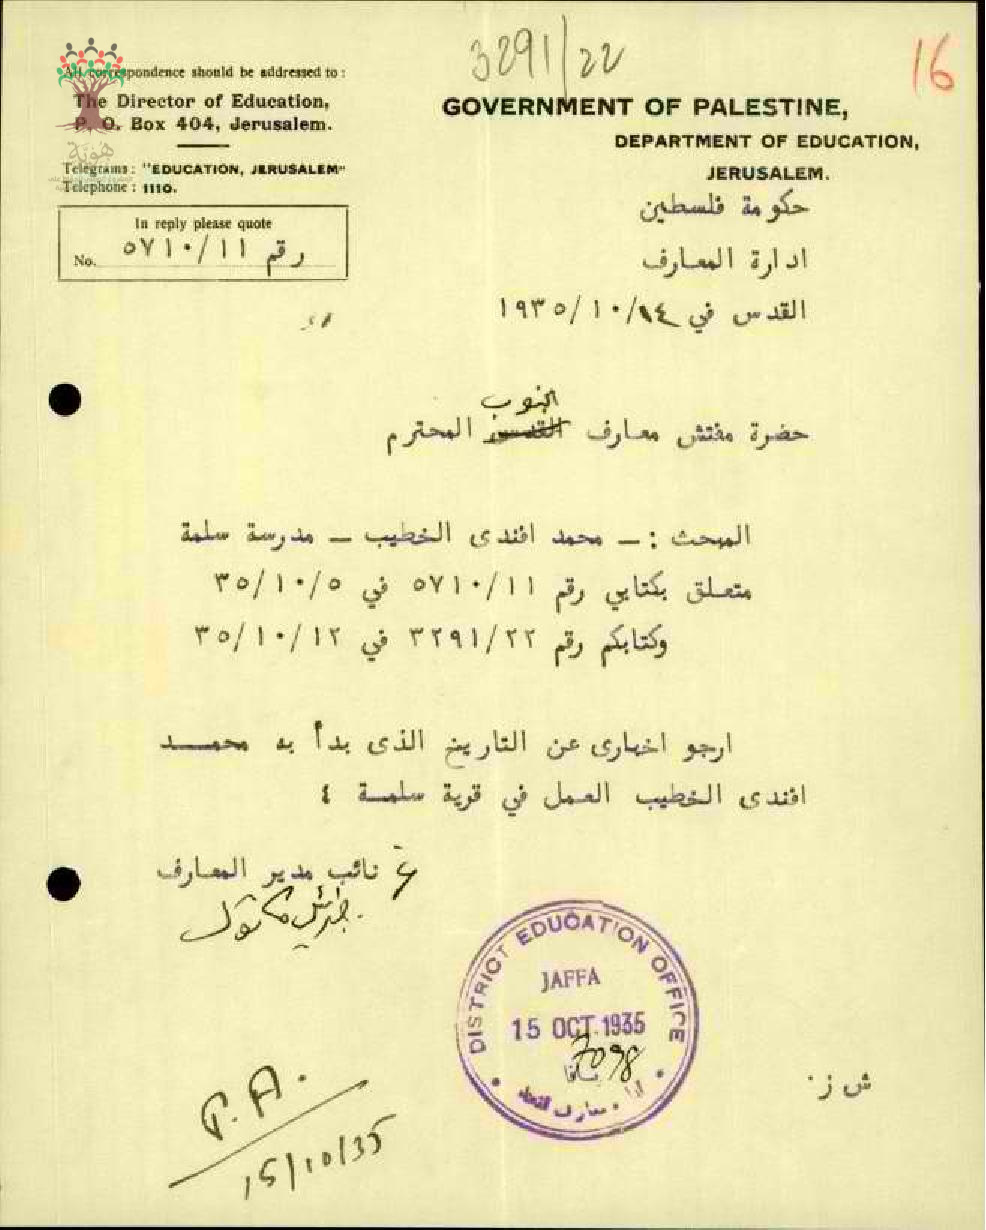 3291/22
16
All correspondence should be addressed to :
The Director of Education,
P. O. Box 404, Jerusalem.
Telegrams : "EDUCATION, JERUSALEM"
Telephone : 1110.
In reply please quote
No. رقم ٥٧١٠/١١
هوية
GOVERNMENT OF PALESTINE,
DEPARTMENT OF EDUCATION,
JERUSALEM.
حكومة فلسطين
ادارة المعارف
القدس في ١٩٣٥/١٠/١٤
الجنوب
حضرة مفتش معارف القدس المحترم
المبحث :ـ محمد افندى الخطيب ـ مدرسة سلمة
متعلق بكتابي رقم ٥٧١٠/١١ في ٣٥/١٠/٥
وكتابكم رقم ٣٢٩١/٢٢ في ٣٥/١٠/١٢
ارجو اخبارى عن التاريخ الذى بدأ به محمد
افندى الخطيب العمل في قرية سلمة ؟
ع نائب مدير المعارف
جبرائيل كاتول
DISTRICT EDUCATION OFFICE
JAFFA
15 OCT. 1935
7098
يافا
ش ز.
P.A.
15/10/35